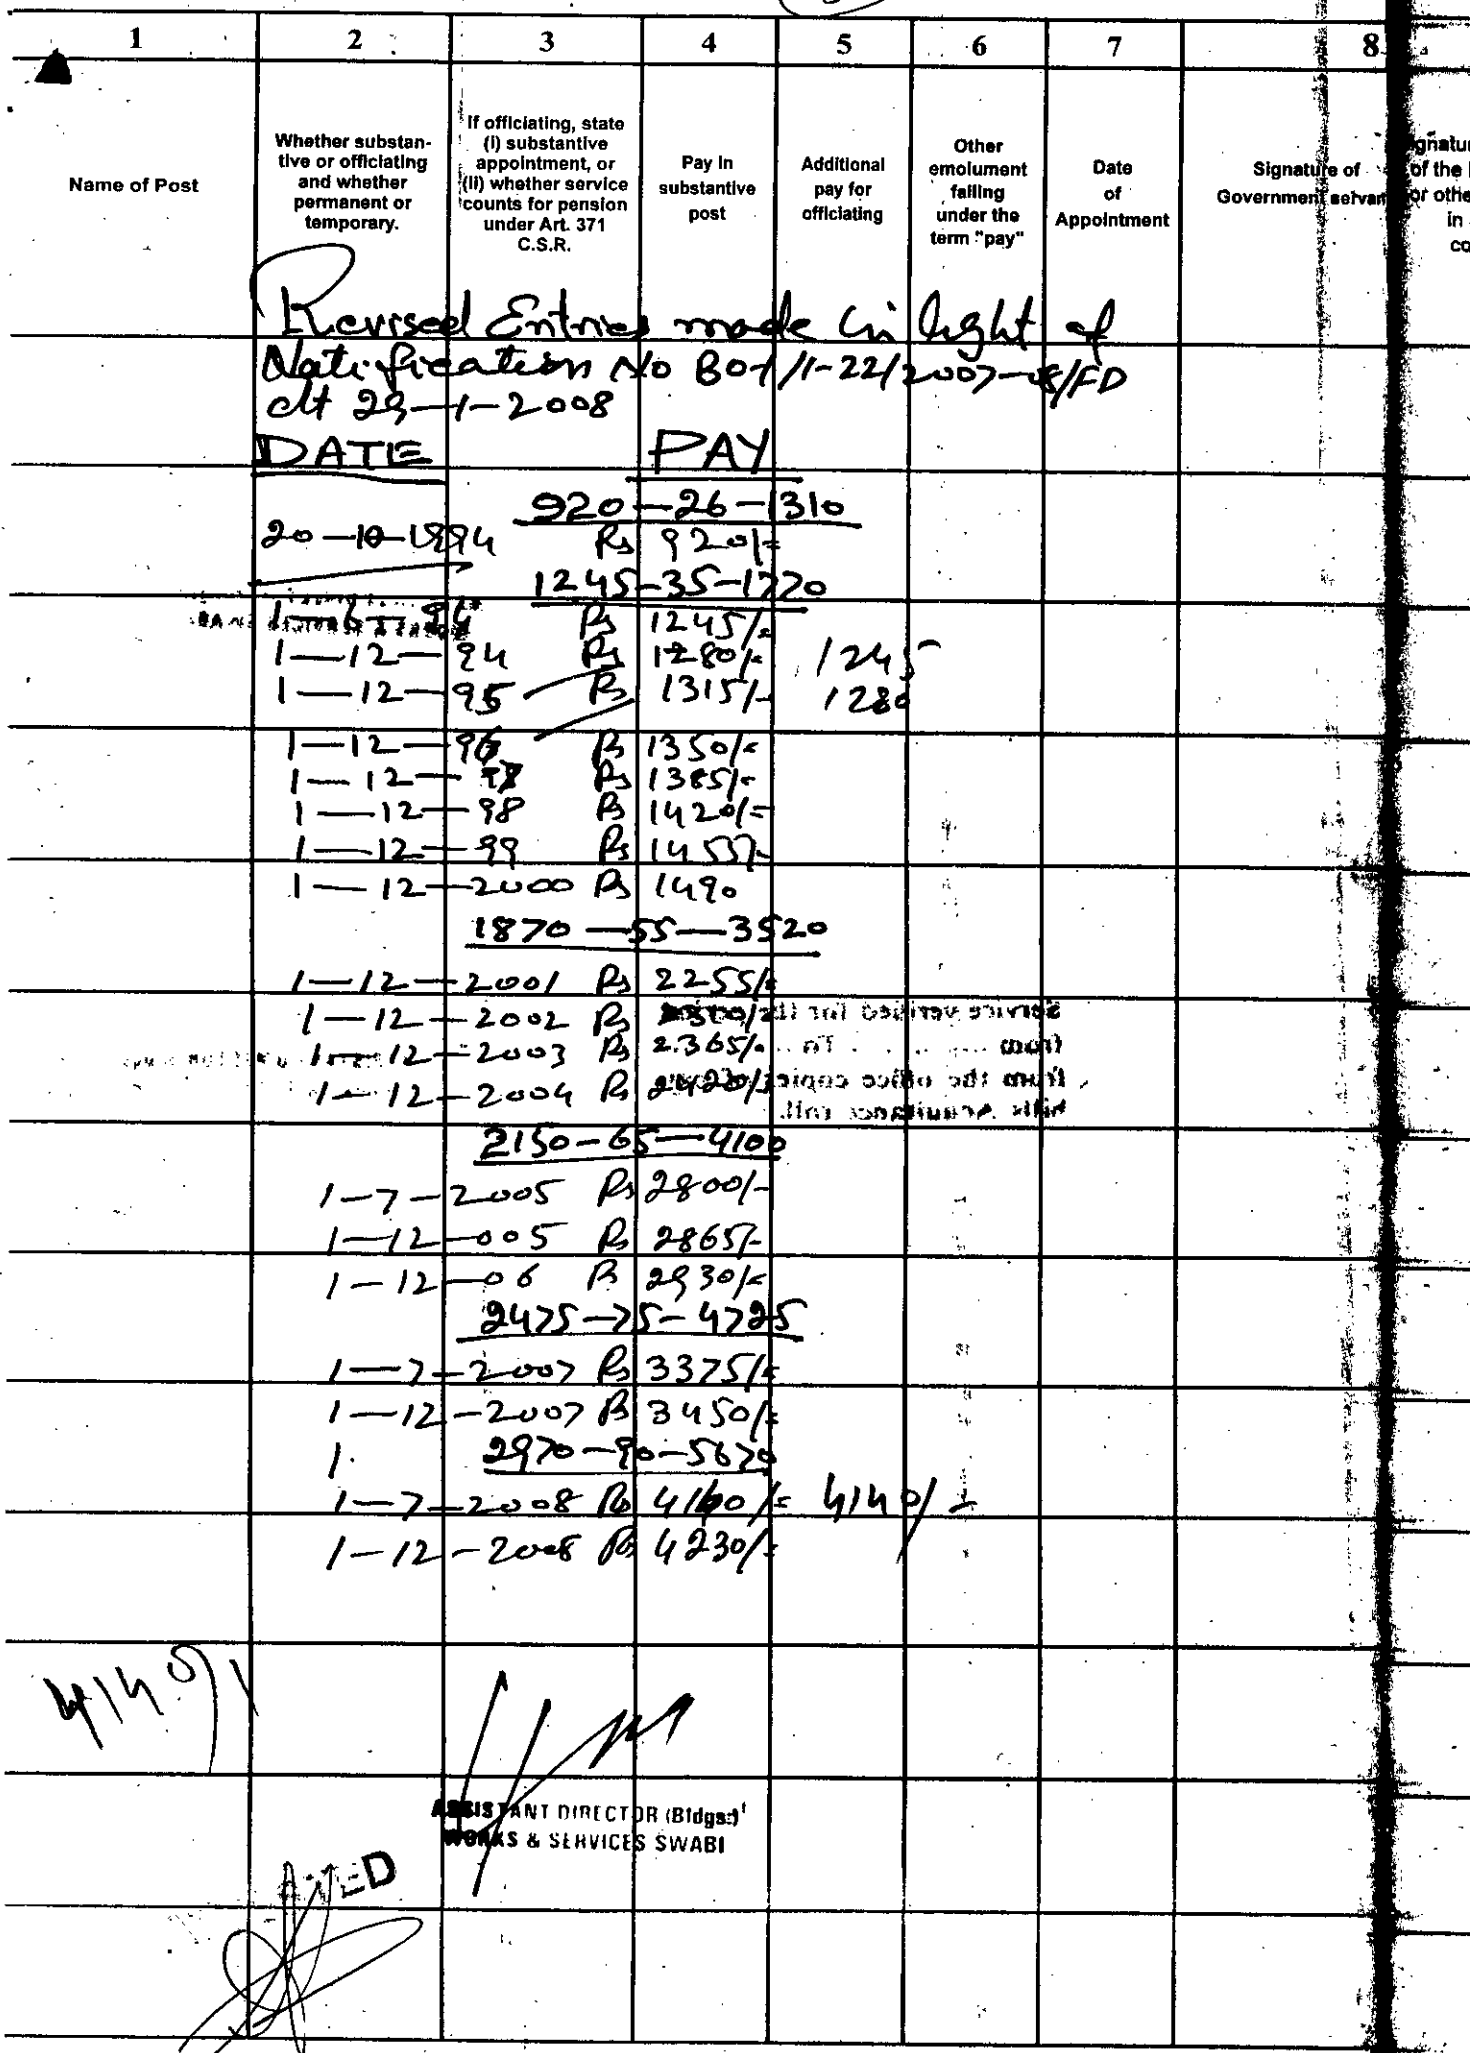 1 2 3 4 5 6 7 8
Name of Post
Whether substan-
tive or officiating
and whether
permanent or
temporary.
If officiating, state
(i) substantive
appointment, or
(ii) whether service
counts for pension
under Art. 371
C.S.R.
Pay in
substantive
post
Additional
pay for
officiating
Other
emolument
falling
under the
term "pay"
Date
of
Appointment
Signature of
Government servan
gnatur
of the
or othe
in
co
Revised Entries made in light of
Notification No BO-1/1-22/2007-08/FD
dt 29-1-2008
DATE PAY
920-26-1310
20-10-1994 Rs 920/=
1245-35-1770
1-6-94 Rs 1245/=
1-12-94 Rs 1280/= 1245
1-12-95 Rs 1315/- 1280
1-12-96 Rs 1350/=
1-12-97 Rs 1385/=
1-12-98 Rs 1420/=
1-12-99 Rs 1455/-
1-12-2000 Rs 1490
1870-55-3520
1-12-2001 Rs 2255/=
1-12-2002 Rs 2310/=
1-12-2003 Rs 2365/-
1-12-2004 Rs 2420/=
Service verified for the
from To
from the office copies of
bills Acquitance roll.
2150-65-4100
1-7-2005 Rs 2800/-
1-12-005 Rs 2865/-
1-12-06 Rs 2930/=
2475-75-4725
1-7-2007 Rs 3375/=
1-12-2007 Rs 3450/=
1. 2970-90-5670
1-7-2008 Rs 4140/= 4140/-
1-12-2008 Rs 4230/=
4140/
ASSISTANT DIRECTOR (Bldgs:)
WORKS & SERVICES SWABI